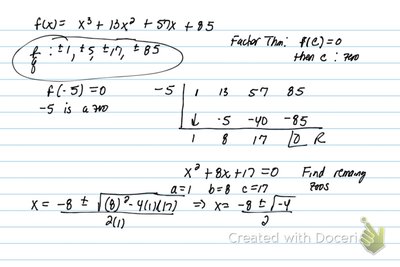 f(x) = x³ + 13x² + 57x + 85
p/q : ±1, ±5, ±17, ±85
Factor Thm: f(c) = 0
then c : zero
f(-5) = 0
-5 is a zero
-5 | 1 13 57 85
↓ -5 -40 -85
1 8 17 |0 R
x² + 8x + 17 = 0 Find remaining zeros
a=1 b=8 c=17
x = (-8 ± √((8)² - 4(1)(17))) / 2(1) ⇒ x = (-8 ± √-4) / 2
Created with Doceri